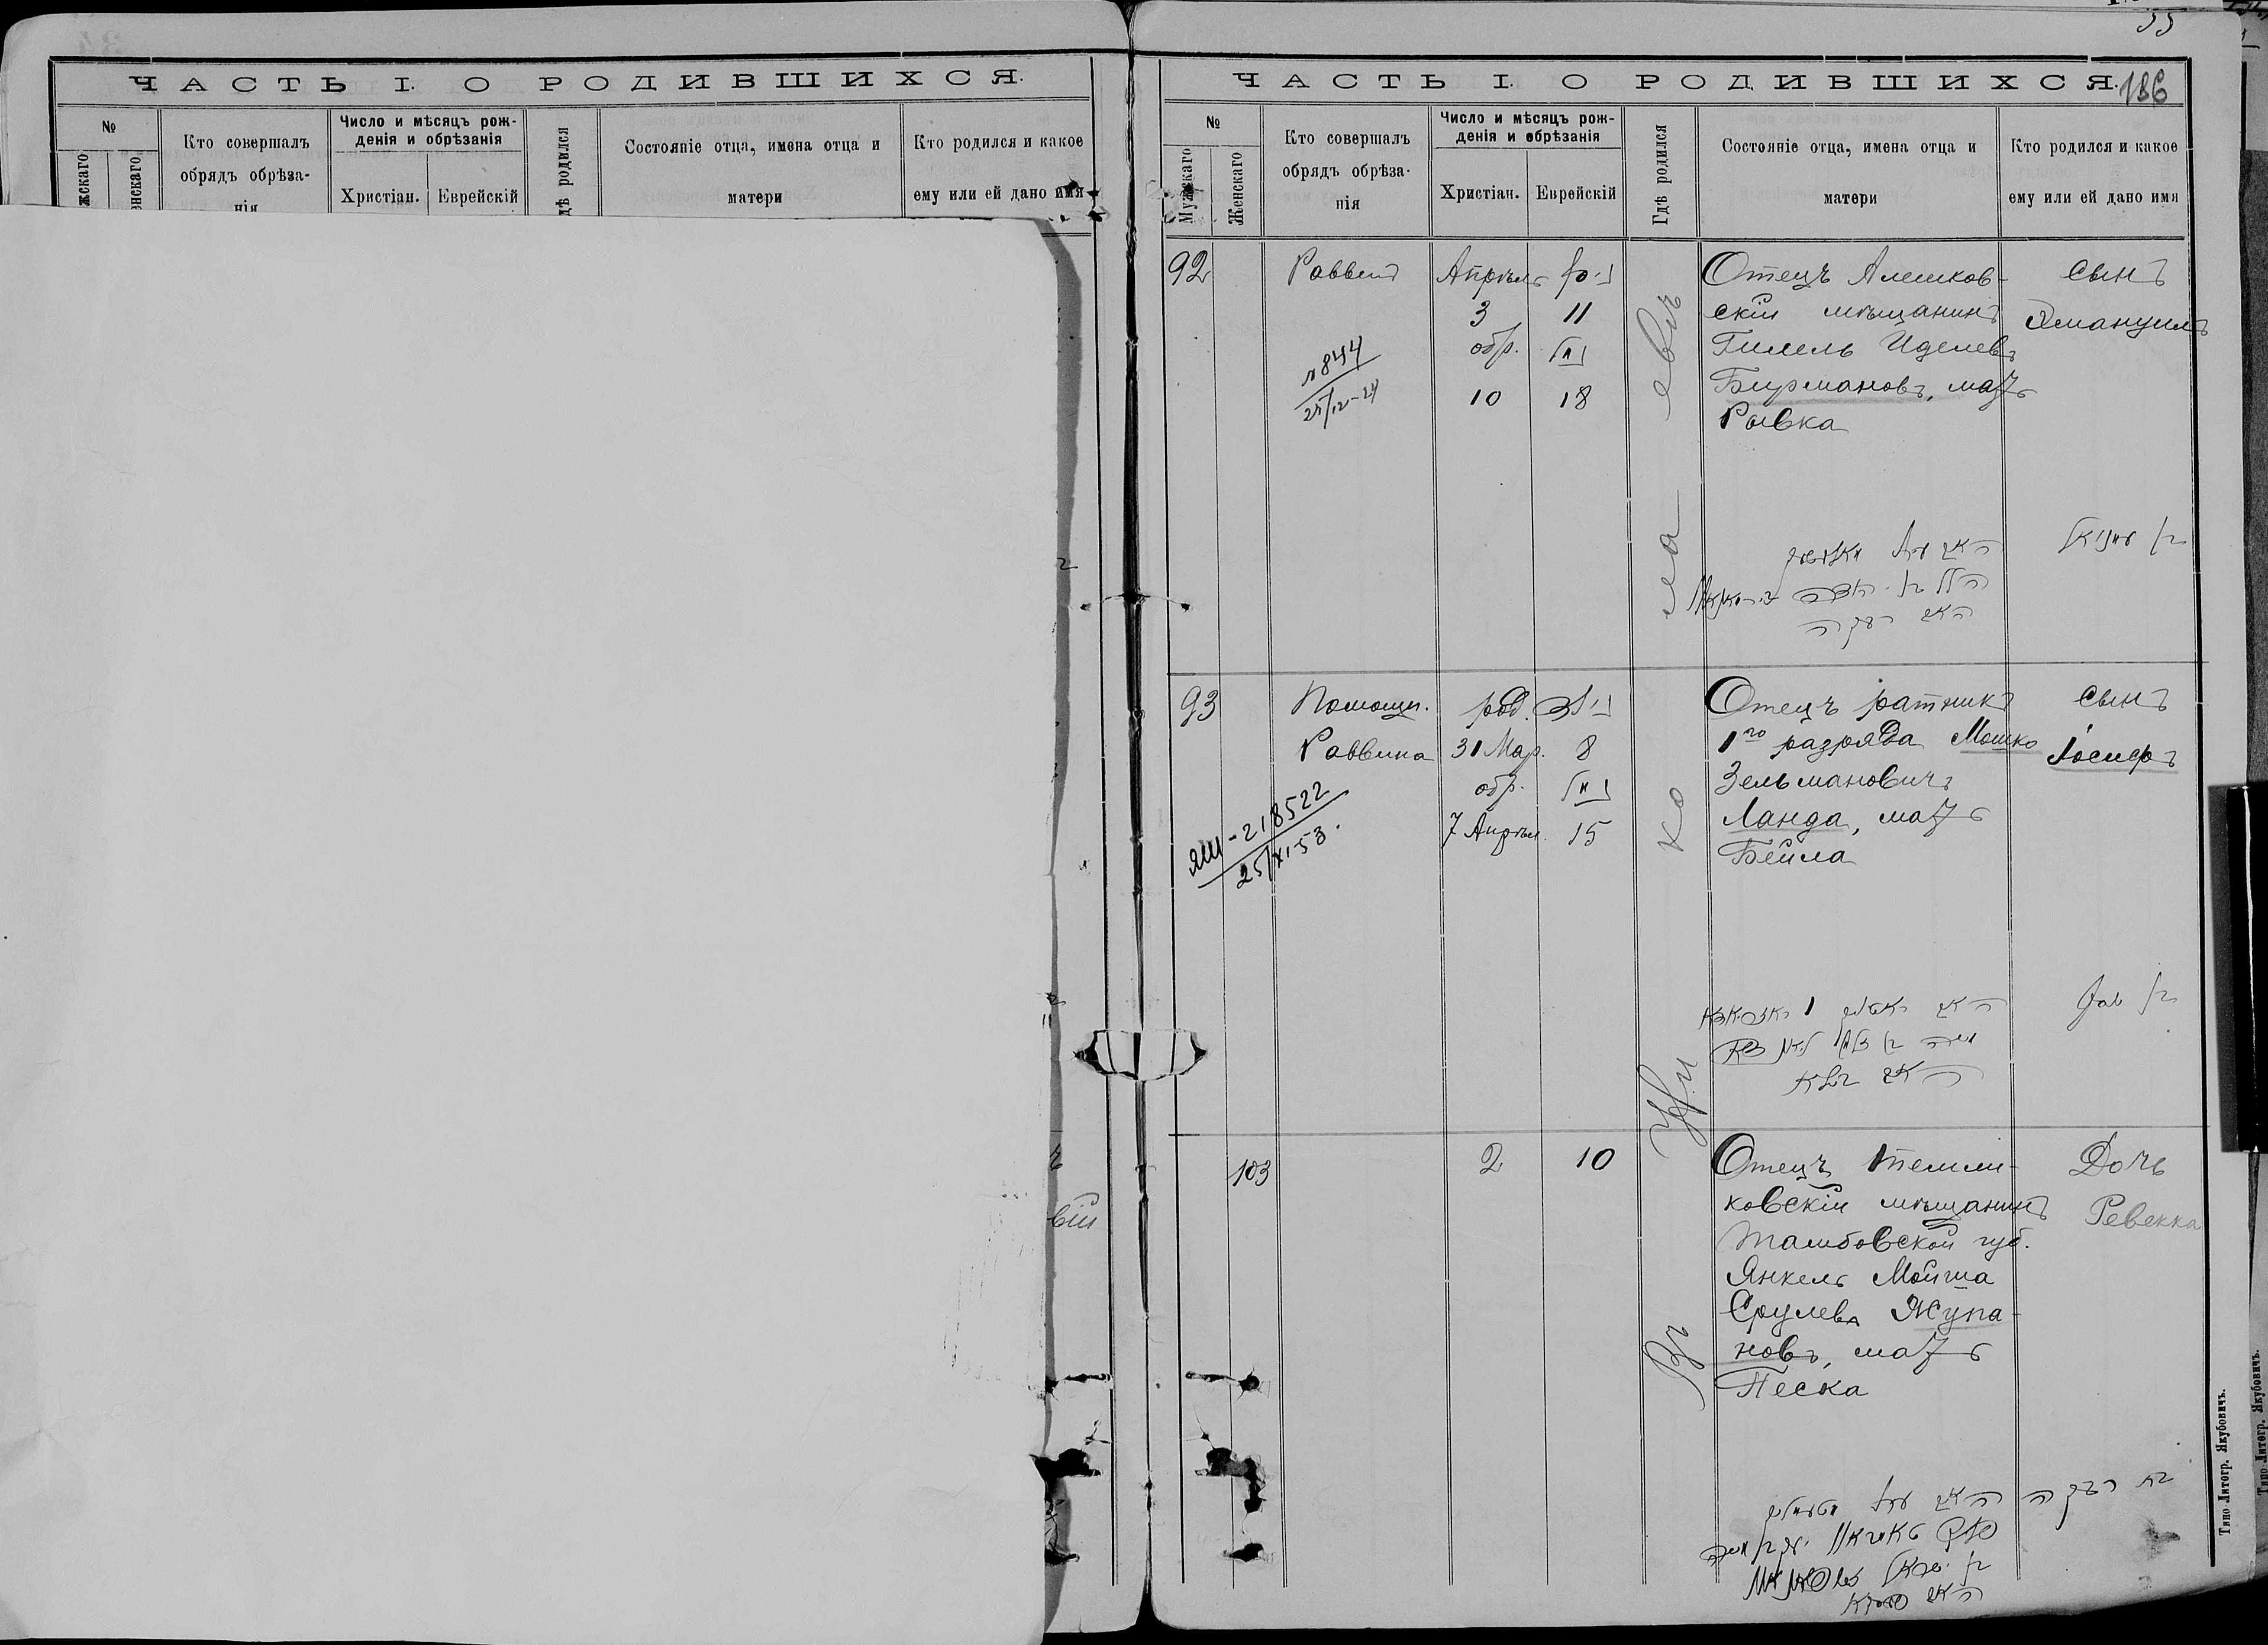 ЧАСТЬ I. О РОДИВШИХСЯ.
№
жскаго
енскаго
Кто совершалъ
обрядъ обрѣза-
нія
Число и мѣсяцъ рож-
денія и обрѣзанія
Христіан.
Еврейскій
дѣ родился
Состояніе отца, имена отца и
матери
Кто родился и какое
ему или ей дано имя
вій
55
ЧАСТЬ I. О РОДИВШИХСЯ.
186
№
Мужскаго
Женскаго
Кто совершалъ
обрядъ обрѣза-
нія
Число и мѣсяцъ рож-
денія и обрѣзанія
Христіан.
Еврейскій
Гдѣ родился
Состояніе отца, имена отца и
матери
Кто родился и какое
ему или ей дано имя
Въ Ни ко ла евѣ
92
Раввинъ
№844
25/12-24
Апрѣль
3
обр.
10
11
18
Отецъ Алешков-
скій мѣщанинъ
Гилель Иделевъ
Бирмановъ, мать
Рывка
сынъ
Эмануилъ
93
Помощн.
Раввина
ЯШ-218522
25/XI-53.
род.
31 Мар.
обр.
7 Апрѣл.
8
15
Отецъ ратникъ
1го разряда Мошко
Зельмановичъ
Ланда, мать
Бейла
сынъ
Іосифъ
103
2
10
Отецъ Темни-
ковскій мѣщанинъ
Тамбовской губ.
Янкель Мойша
Срулевъ Жупа-
новъ, мать
Песка
Дочь
Ревекка
Типо Литогр. Якубовичъ.
Типо Литогр. Якубовичъ.